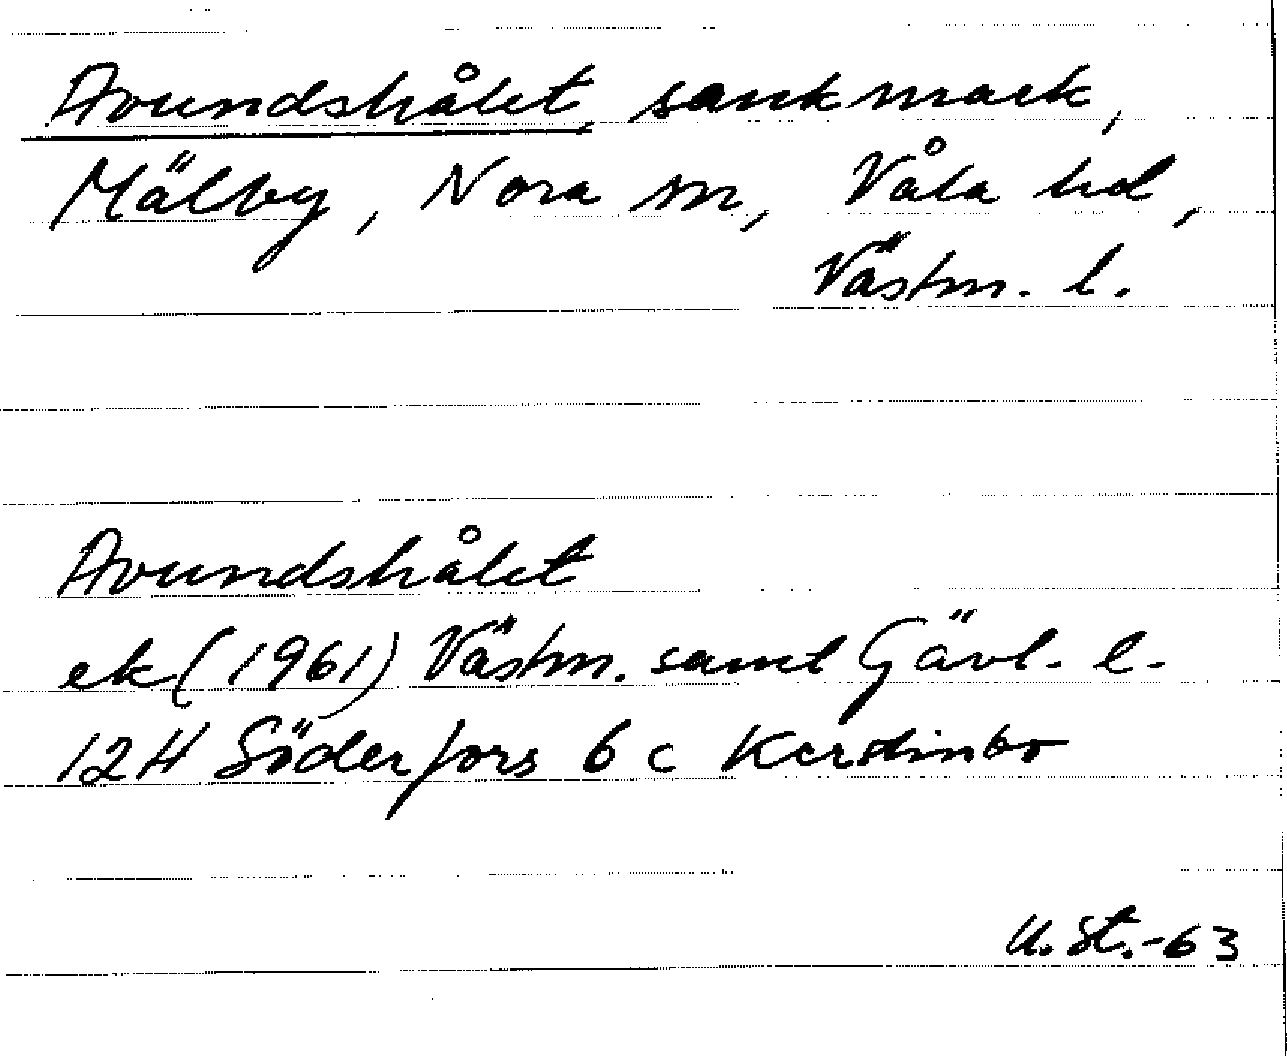 Avundshålet, sankmark,
Mälby, Nora sn, Våla hd,
Västm. l.
Avundshålet
ek (1961) Västm. samt Gävl. l.
12H Söderfors 6 c Kerstinbo
U. St. -63